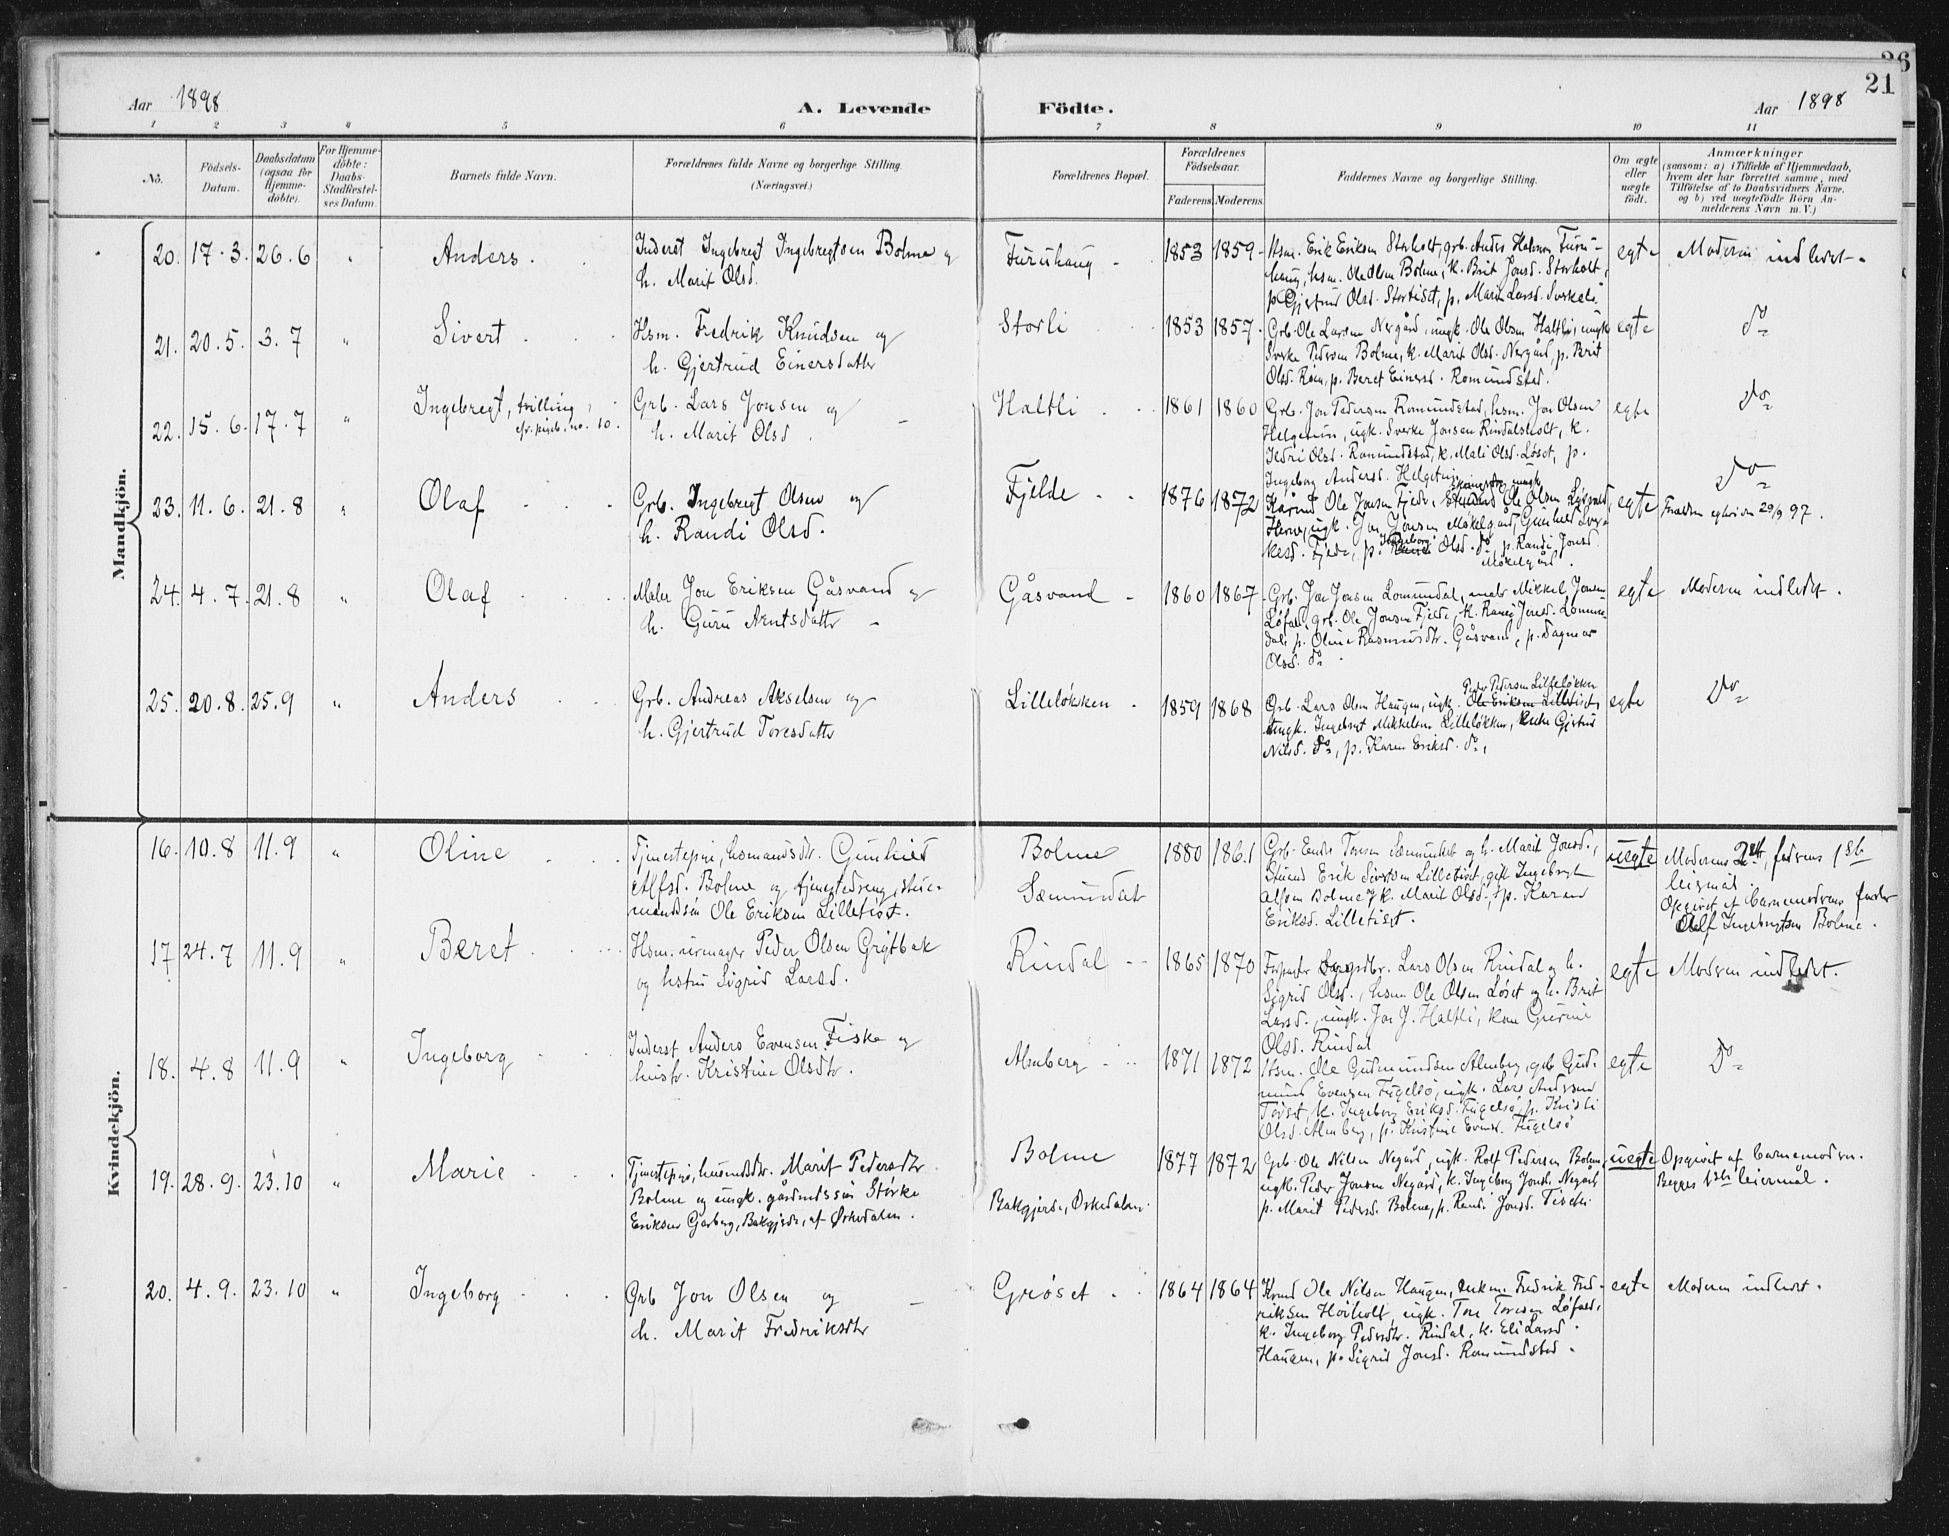 26
21
Aar 1898
A. Levende Födte.
Aar 1898
1 2 3 4 5 6 7 8 9 10 11
No.
Födsels-Datum.
Daabsdatum (ogsaa for Hjemme-döbte).
For Hjemme-döbte: Daabs-Stadfæstel-ses Datum.
Barnets fulde Navn.
Forældrenes fulde Navne og borgerlige Stilling.
(Næringsvei.)
Forældrenes Bopæl.
Forældrenes Födselsaar.
Faderens. Moderens.
Faddernes Navne og borgerlige Stilling.
Om ægte eller uægte født.
Anmærkninger
(saasom: a) i Tilfælde af Hjemmedaab, hvem der har forrettet samme, med Tilføielse af to Daabsvidners Navne, og b) ved uægtefødte Börn An-melderens Navn m. V.)
Mandkjön.
20. 17.3. 26.6 " Anders.
Inderst Ingebregt Ingebregtsen Bolme og
h. Marit Olsd.
Furuhaug 1853 1859
Hsm. Erik Eriksen Storholt, grb. Anders Halvorsen Furu-
haug, hsm. Ole Olsen Bolme, k. Brit Jonsd. Storholt,
p. Gjertrud Olsd. Stortiset, p. Marit Larsd.
egte Moderen indledet.
21. 20.5. 3.7 " Sivert
Hsm. Fredrik Knudsen og
h. Gjertrud Einersdatter
Storli 1853 1857.
Grb. Ole Larsen Nergård, ungk. Ole Olsen Haltli, ungk
Sverke Pedersen Bolme, k. Marit Olsd. Nergård, p. Brit
Olsd. Røen, p. Beret Einersd. Romundstad.
egte Do
22. 15.6. 17.7 " Ingebregt, tvilling,
cfr. pigeb. no. 10.
Grb. Lars Jonsen og
h. Marit Olsd.
Haltli 1861 1860
Grb. Jon Pedersen Romundstad, hsm. Jon Olsen
Helgetun, ugk. Sverke Jonsen Rindalsholt, k.
Ildri Olsd. Romundstad, k. Mali Olsd. Løset, p.
Ingeborg Andersd. Helgetun
egte Do
23. 11.6. 21.8 " Olaf
Grb. Ingebregt Olsen og
h. Randi Olsd.
Fjelde 1876 1872
Kårmd Ole Jonsen Fjelde, Ole Olsen
ugk. Jon Jonsen Møkelgård, Gunhild Sver-
kesd. Fjelde, p. Ingeborg Olsd. do, p. Randi Jonsd.
Møkelgård.
egte Do
Forældren egteviet 29/9 97.
24. 4.7. 21.8 " Olaf
Maler Jon Eriksen Gåsvand og
h. Guru Arntsdatter
Gåsvand 1860 1867
Grb. Jon Jonsen Lomundal, maler Mikkel Jonsen
Løfald, grb. Ole Jonsen Fjelde, k. Randi Jonsd. Lomun-
dal, p. Oline Rasmusdtr. Gåsvand, p. Dagmar
Olsd. do.
egte Moderen indledet.
25. 20.8. 25.9 " Anders
Grb. Andreas Akselsen og
h. Gjertrud Toresdatter
Lilleløkken 1859 1868
Peder Pedersen Lilleløkken
Grb. Lars Olsen Haugen, ungk. Ole Eriksen Lilletiset,
ungk. Ingebregt Mikkelsen Lilleløkken, Gjertrud
Nilsd. do, p. Karen Eriksd. do,
egte Do
Kvindekjön.
16. 10.8 11.9 " Oline
Tjenestepige, husmandsdtr. Gunhild
Alfsd. Bolme og tjenestedreng, stue-
mandssøn Ole Eriksen Lilletiset.
Bolme
Sæmundset
1880 1861
Grb. Endre Toresen Sæmundset og h. Marit Jonsd.,
Stuemd Erik Sivertsen Lilletiset, gift Ingebregt
Alfsen Bolme, k. Marit Olsd., p. Karen
Eriksd. Lilletiset.
uegte
Moderens 2det, faderens 1ste
leiermål.
Opgivet af barnemoderens fader
Alf Ingebregtsen Bolme.
17 24.7 11.9 " Beret
Hsm. urmager Peder Olsen Grytbak
og hstru Sigrid Larsd.
Rindal 1865 1870
Lars Olsen Rindal og h.
Sigrid Olsd., hsm Ole Olsen Løset og h. Brit
Larsd., ungk. Jon J. Haltli, kone Gurine
Olsd. Rindal
egte Moderen indledet.
18. 4.8 11.9 " Ingeborg
Inderst Anders Evensen Fiske og
hustr. Kristine Olsdtr.
Almberg 1871 1872
Hsm. Ole Gudmundsen Almberg, grb Gud-
mund Evensen Fugelsø, ugk. Lars Andersen
Tøset, k. Ingeborg Eriksd. Fugelsø, p. Kristi
Olsd. Almberg, p. Kristine Evensd. Fugelsø
egte Do
19. 28.9. 23.10 " Marie
Tjenestepige, husmdsdtr. Marit Pedersdtr
Bolme og ungk. gårdmdssøn Størker
Eriksen Garberg, Bakgjerde, af Ørkedalen.
Bolme
Bakgjerde, Orkedalen.
1877 1872
Grb. Ole Nilsen Negård, ugk. Rolf Pedersen Bolme,
ugk. Peder Jonsen Negård, k. Ingeborg Jonsd. Negård
p. Marit Pedersd. Bolme, p. Randi Jonsd.
uegte
Opgivet af barnemoderen.
Begges 1ste leiermål.
20. 4.9. 23.10 " Ingeborg
Grb Jon Olsen og
h. Marit Fredriksdtr
Greøset 1864 1864
Ole Nilsen Haugen, enkem. Fredrik Fred-
riksen Høiholt, ugk. Tore Toresen Løfald,
k. Ingeborg Pedersdtr. Rindal, k. Eli Larsd.
Haugen, p. Sigrid Jonsd. Romundstad.
egte Moderen indledet.